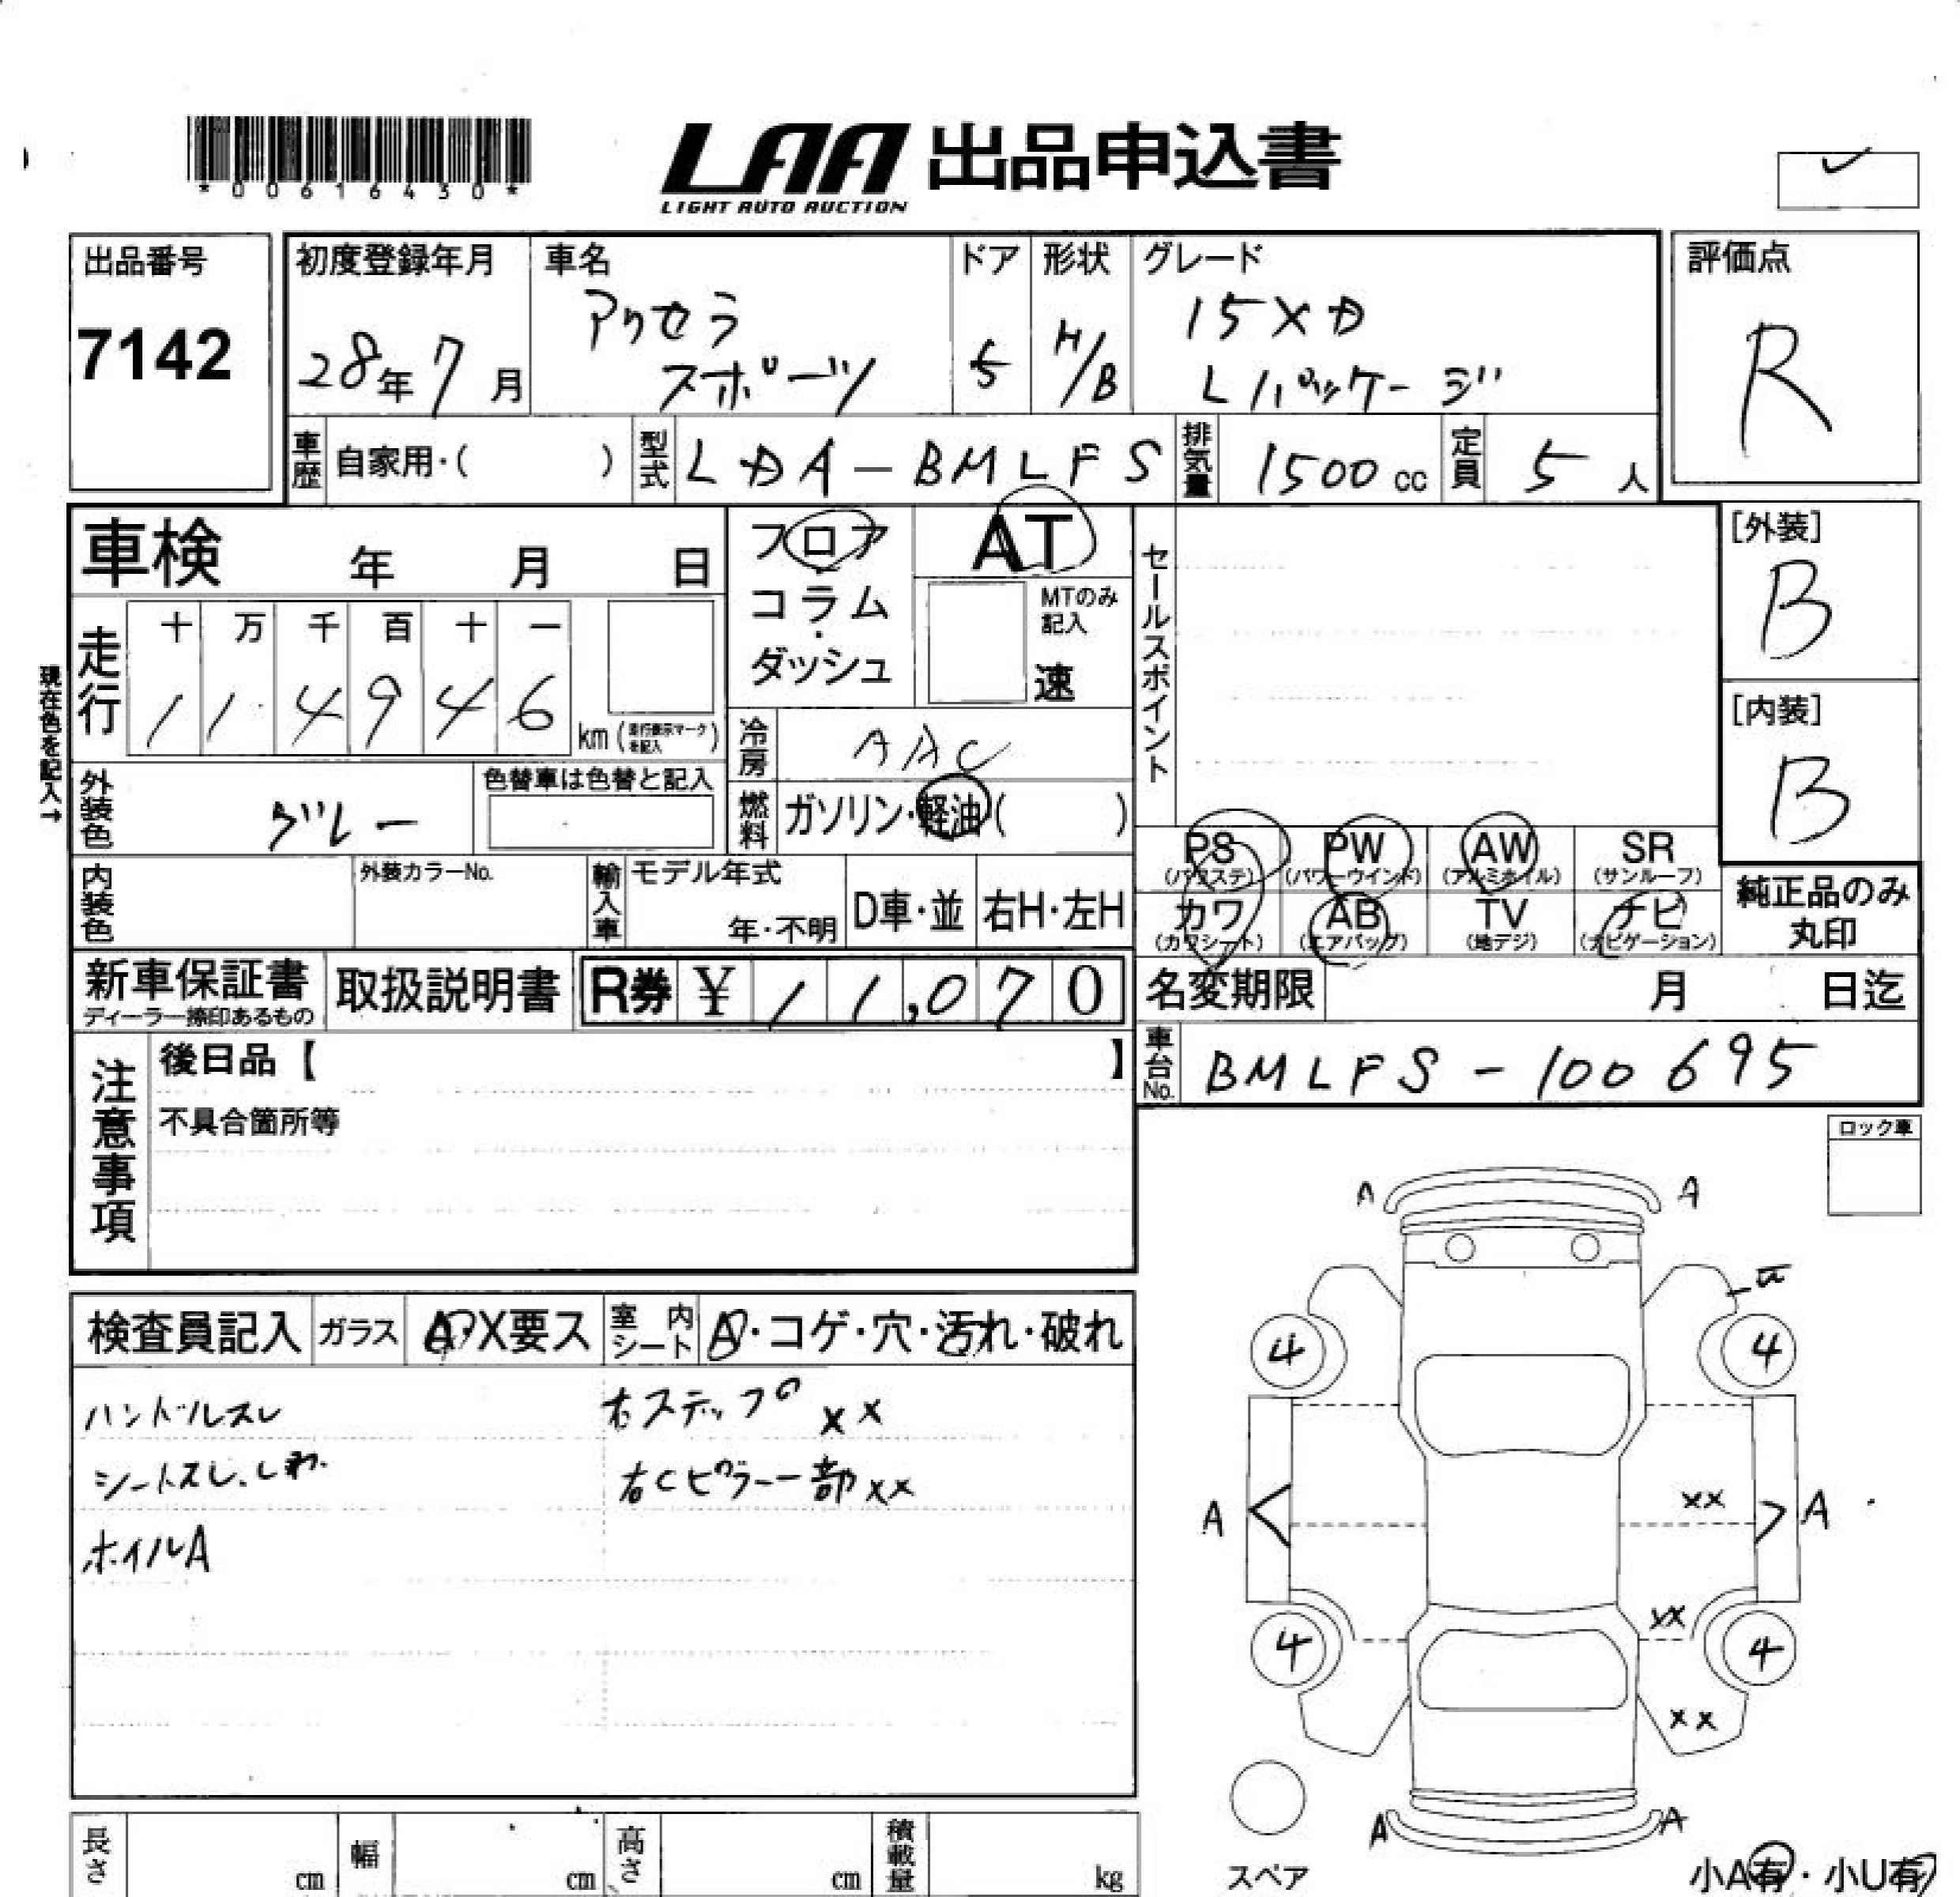 *00616430*
LAA 出品申込書
LIGHT AUTO AUCTION
出品番号
7142
初度登録年月
28年7月
車名
アクセラ
スポーツ
ドア
5
形状
H/B
グレード
15XD
Lパッケージ
評価点
R
車歴 自家用・( )
型式 LDA-BMLFS
排気量 1500cc
定員 5人
車検 年 月 日
走行
十 万 千 百 十 一
1 1 4 9 4 6 km (走行表示マークを記入)
現在色を記入→
外装色 グレー
色替車は色替と記入
フロア
コラム
・
ダッシュ
AT
MTのみ
記入
速
冷房 AAC
燃料 ガソリン・軽油( )
セールスポイント
[外装]
B
[内装]
B
内装色
外装カラーNo.
輸入車
モデル年式
年・不明
D車・並
右H・左H
PS
(パワステ)
PW
(パワーウインド)
AW
(アルミホイル)
SR
(サンルーフ)
カワ
(カワシート)
AB
(エアバッグ)
TV
(地デジ)
ナビ
(ナビゲーション)
純正品のみ
丸印
新車保証書
ディーラー捺印あるもの
取扱説明書
R券 ¥ 11,070
名変期限 月 日迄
車台No. BMLFS-100695
注意事項
後日品【 】
不具合箇所等
ロック車
検査員記入
ガラス A・X要ス
室内シート A・コゲ・穴・汚れ・破れ
ハンドルスレ
シートスレ、しわ
ホイルA
右ステップ XX
右Cピラー部 XX
A A
U
4 4
XX
A A
XX
4 4
XX
A A
スペア
小A有・小U有
長さ cm
幅 cm
高さ cm
積載量 kg